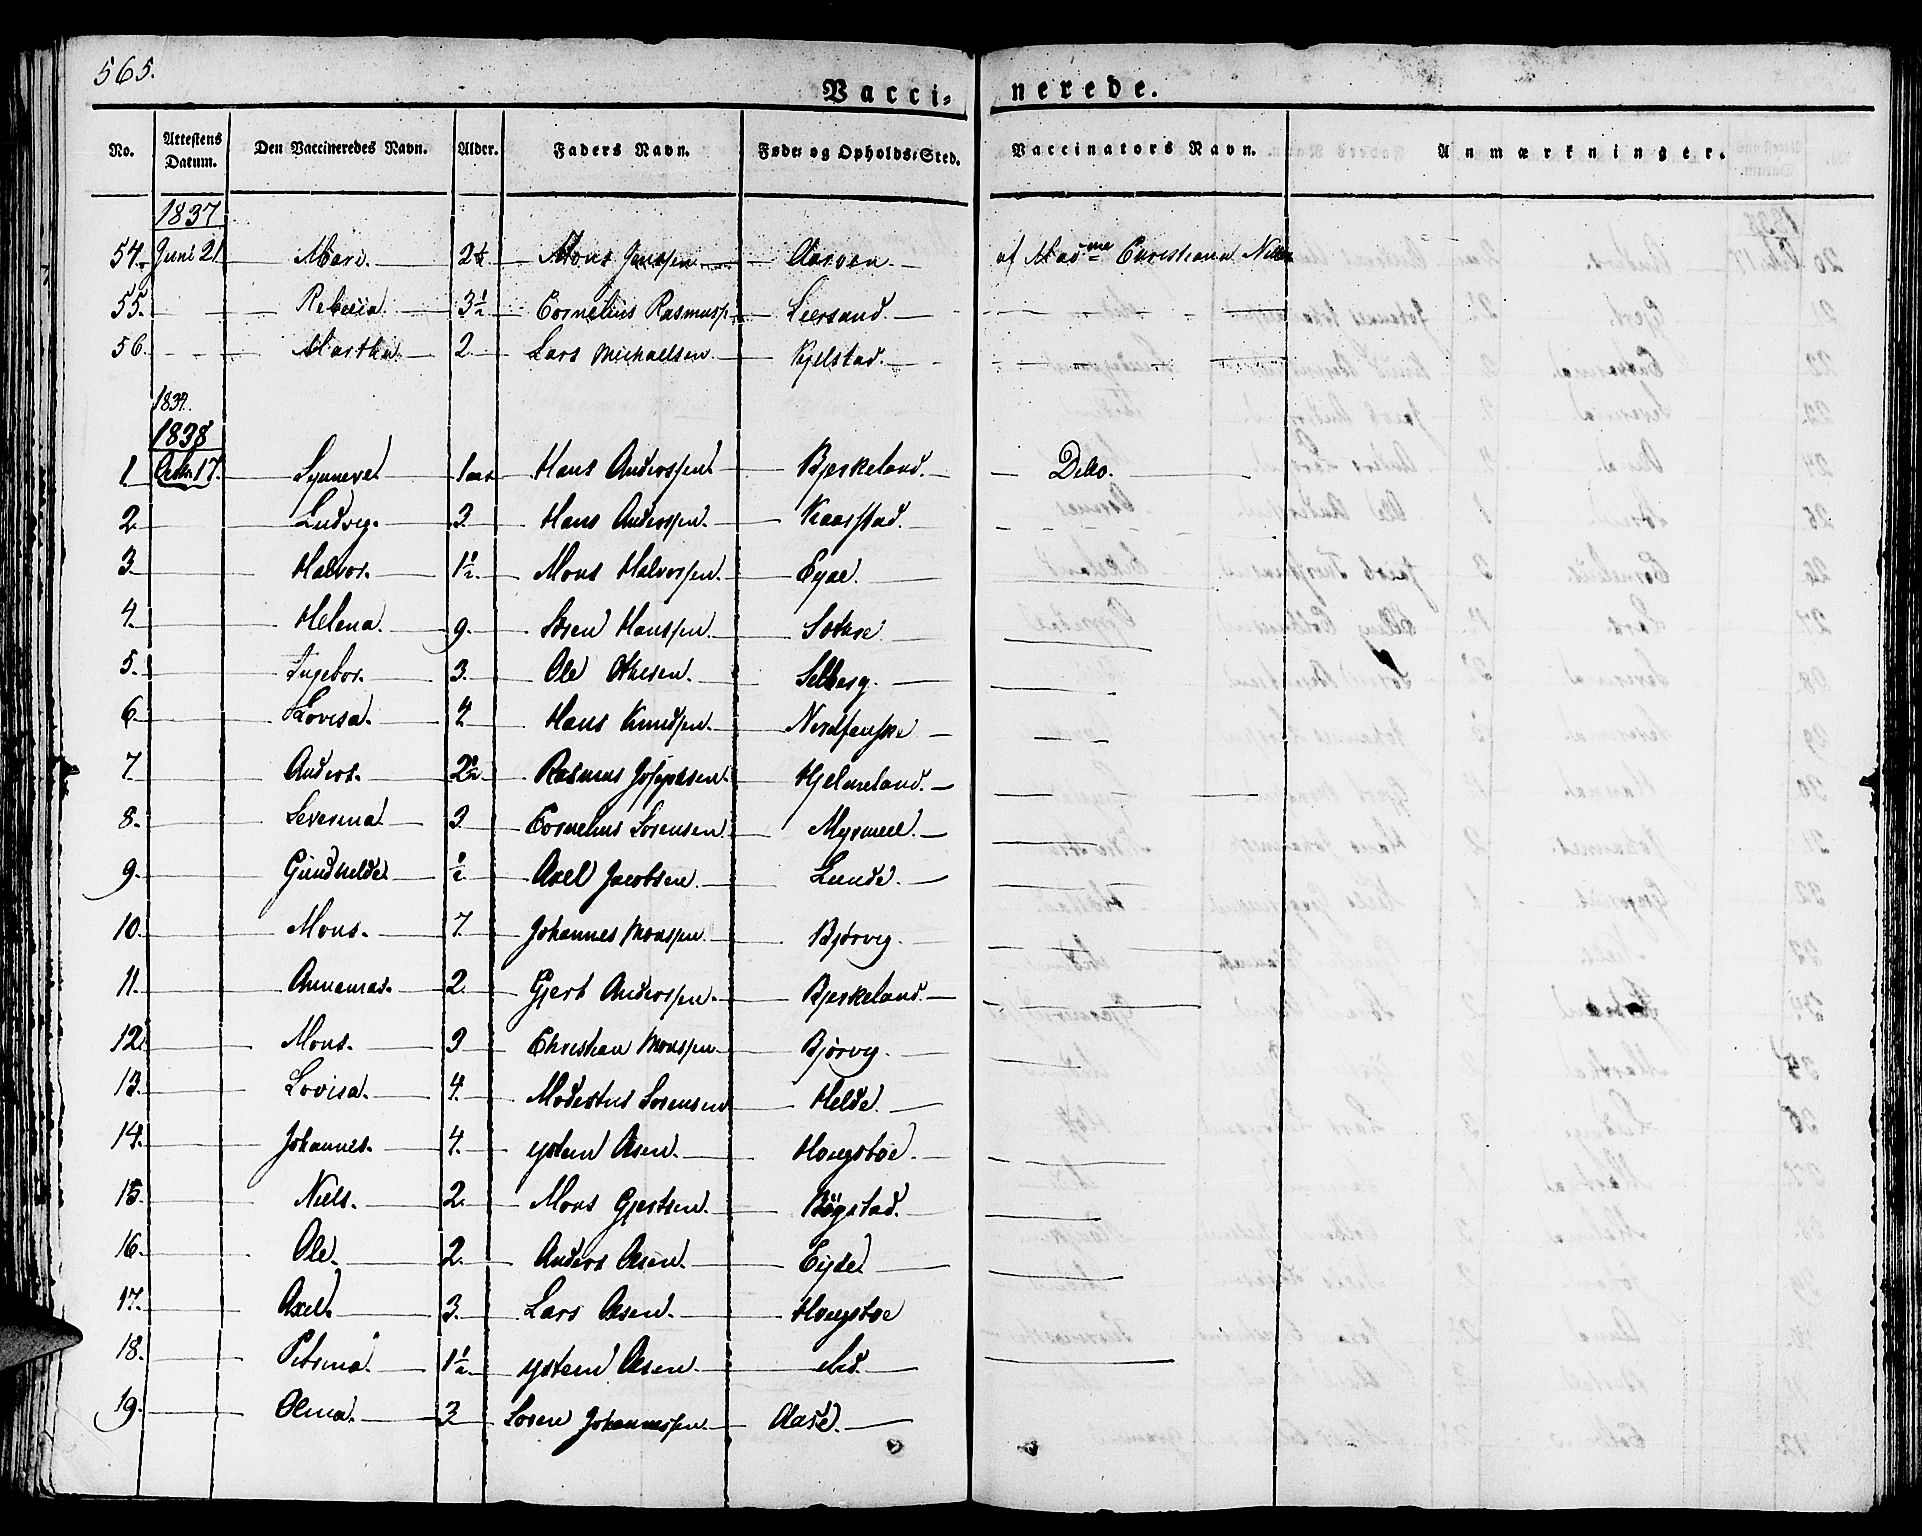 565.
Vacci- nerede.
No. Attestens Datum. Den Vaccineredes Navn. Alder. Faders Navn. Føde- og Opholds-Sted. Vaccinators Navn. Anmærkninger.
1837
54. Juni 21 Mari. 2½ Mons Janssen Aarven. af Madme Christiana
55. Rebecca 3½ Cornelius Rasmuss. Leersand.
56. Martha 2 Lars Michaelsen Kjelstad.
1837.
1838
1 Octbr. 17. Synneve 1 aar Hans Anderssen Bjerkeland. Ditto.
2. Ludvig. 3. Hans Anderssen. Kaarstad.
3. Halvor. 1½. Mons Halvorssen
4. Helena. 9. Søren Hanssen
5. Ingebor. 3. Ole Selberg.
6. Lovisa. 4 Hans Knudssen.
7 Anders. 2½. Rasmus Josephsen Hjelmeland.
8. Severina 3 Cornelius Sørensen Myrmeel.
9. Gundhilde ½ Axel Jacobsen Lunde.
10. Mons. 7. Johannes Monssen Bjørvig.
11. Annamar. 2. Gjert Anderssen. Bjerkeland.
12. Mons. 3 Christian Monssen Bjørvig.
13. Lovisa. 4. Modestus Sørensen Helde.
14. Johannes. 4. ysten Olsen. Hougsbøe.
15. Niels. 2. Mons Gjertsen. Bögstad.
16. Ole. 2. Anders Olsen. Eijde
17. Axel. 3. Lars Olsen. Hougsbøe
18. Petrina 1½ ysten Olsen. ibd.
19. Olina. 3. Søren Johannessen Aase.